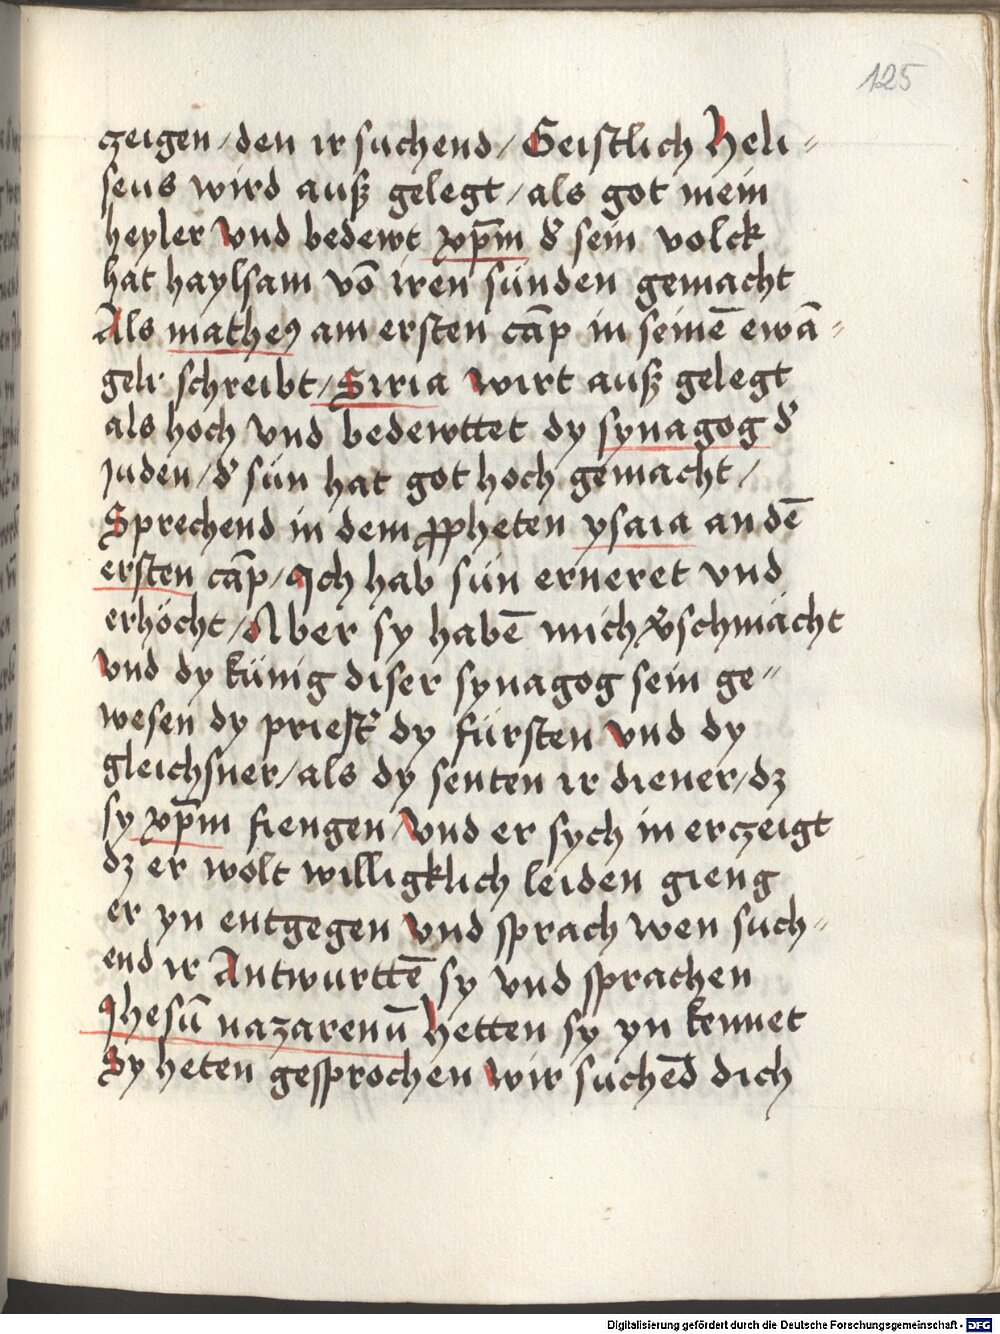 125
czeigen / den ir suchend / Geistlich Heli=
seus wird auß gelegt / als got mein
heyler Vnd bedewt xp̄m d̕ sein volck
hat haylsam võ iren sünden gemacht
Als matheꝯ am ersten cāp in seinē ewā=
geli schreibt / Siria wirt auß gelegt
als hoch vnd bedewttet dy synagog d̕
Juden / d̕ sün hat got hoch gemacht /
Sprechend in dem ꝓpheten ysaia an dē
ersten cāp / Ich hab sün erneret vnd
erhöcht / Aber sy habē mich v̕schmächt
Vnd dy künig diser synagog sein ge=
wesen dy priest̕ dy fürsten vnd dy
gleichsner / als dy senten ir diener / dz
sy xp̄m fiengen / Vnd er sych in erczeigt
dz er wolt willigklich leiden gieng
er yn entgegen Vnd sprach wen such=
end ir Antwurttē sy vnd sprachen
Ihesū nazarenū Hetten sy yn kennet
Sy heten gesprochen wir suchēd dich
Digitalisierung gefördert durch die Deutsche Forschungsgemeinschaft - DFG